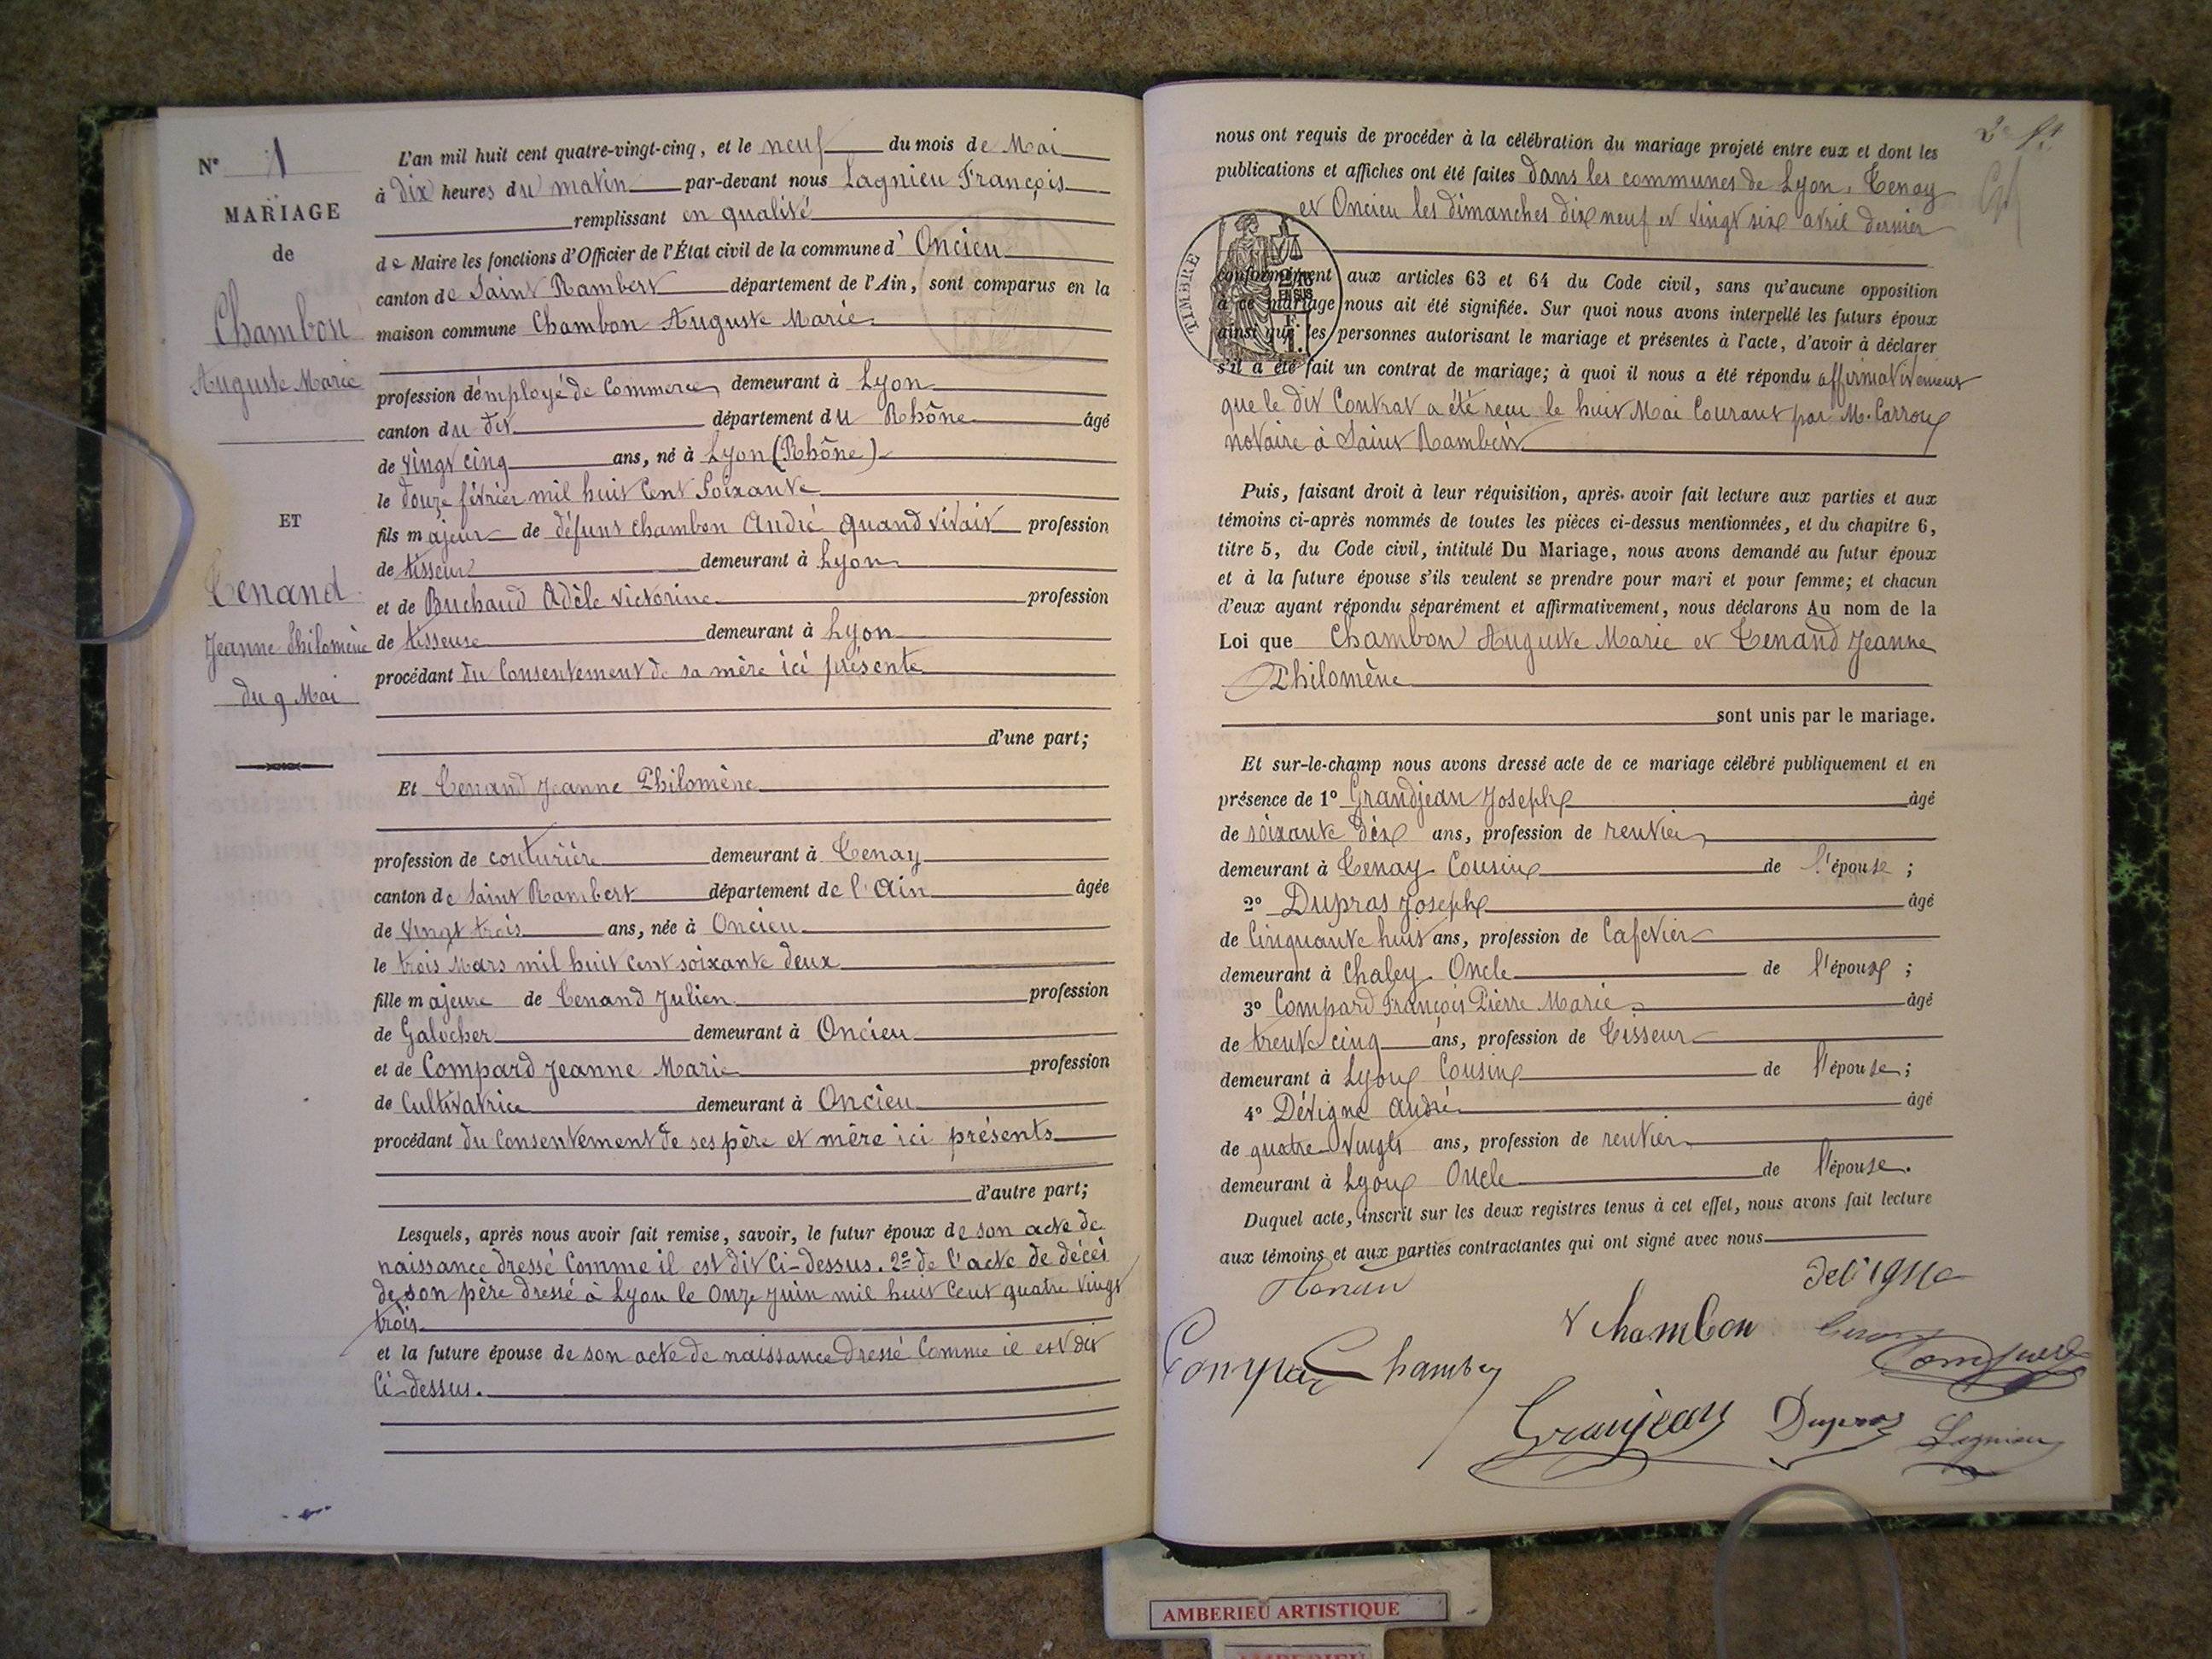 N° 1
MARIAGE
de
Chambon
Auguste Marie
ET
Tenand
Jeanne Philomène
du 9 Mai
L'an mil huit cent quatre-vingt-cinq, et le neuf du mois de Mai
à dix heures du matin par-devant nous Lagnieu François
remplissant en qualité
de Maire les fonctions d'Officier de l'État civil de la commune d'Oncieu
canton de Saint Rambert département de l'Ain, sont comparus en la
maison commune Chambon Auguste Marie
profession d'employé de Commerce, demeurant à Lyon
canton du dit département du Rhône âgé
de vingt cinq ans, né à Lyon (Rhône)
le douze février mil huit cent soixante
fils majeur de défunt Chambon André quand vivait profession
de tisseur demeurant à Lyon
et de Buchaud Adèle Victorine profession
de tisseuse demeurant à Lyon
procédant du Consentement de sa mère ici présente
d'une part;
Et Tenand Jeanne Philomène
profession de couturière demeurant à Tenay
canton de Saint Rambert département de l'Ain âgée
de vingt trois ans, née à Oncieu
le trois Mars mil huit cent soixante deux
fille majeure de Tenand Julien profession
de Galocher demeurant à Oncieu
et de Compard Jeanne Marie profession
de Cultivatrice demeurant à Oncieu
procédant du Consentement de ses père et mère ici présents
d'autre part;
Lesquels, après nous avoir fait remise, savoir, le futur époux de son acte de
naissance dressé Comme il est dit Ci-dessus. 2° de l'acte de décès
de son père dressé à Lyon le Onze Juin mil huit Cent quatre vingt
trois
et la future épouse de son acte de naissance dressé Comme il est dit
Ci-dessus.
nous ont requis de procéder à la célébration du mariage projeté entre eux et dont les
publications et affiches ont été faites dans les communes de Lyon, Tenay
et Oncieu les dimanches dix neuf et vingt six avril dernier
TIMBRE
conformément aux articles 63 et 64 du Code civil, sans qu'aucune opposition
à ce mariage nous ait été signifiée. Sur quoi nous avons interpellé les futurs époux
ainsi que les personnes autorisant le mariage et présentes à l'acte, d'avoir à déclarer
s'il a été fait un contrat de mariage; à quoi il nous a été répondu affirmativement
que le dit Contrat a été recu le huit Mai Courant par M. Carroux
notaire à Saint Rambert
Puis, faisant droit à leur réquisition, après avoir fait lecture aux parties et aux
témoins ci-après nommés de toutes les pièces ci-dessus mentionnées, et du chapitre 6,
titre 5, du Code civil, intitulé Du Mariage, nous avons demandé au futur époux
et à la future épouse s'ils veulent se prendre pour mari et pour femme; et chacun
d'eux ayant répondu séparément et affirmativement, nous déclarons Au nom de la
Loi que Chambon Auguste Marie et Tenand Jeanne
Philomène
sont unis par le mariage.
Et sur-le-champ nous avons dressé acte de ce mariage célébré publiquement et en
présence de 1° Grandjean Joseph âgé
de soixante dix ans, profession de rentier
demeurant à Tenay Cousin de l'épouse;
2° Dupras Joseph âgé
de Cinquante huit ans, profession de Cafetier
demeurant à Chaley Oncle de l'épouse;
3° Compard François Pierre Marie âgé
de trente cinq ans, profession de Tisseur
demeurant à Lyon Cousin de l'épouse;
4° Dévigne André âgé
de quatre vingts ans, profession de rentier
demeurant à Lyon Oncle de l'épouse.
Duquel acte, inscrit sur les deux registres tenus à cet effet, nous avons fait lecture
aux témoins et aux parties contractantes qui ont signé avec nous
Devigne
Chambon
Compard
Chambon
Granjean
Dupras
Lagnieu
AMBERIEU ARTISTIQUE
AMBERIEU